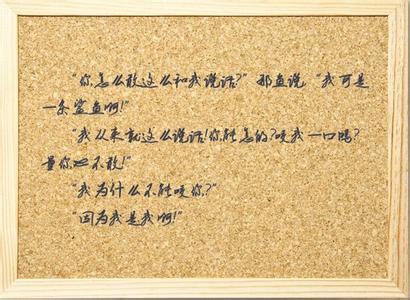 “你怎么敢这么和我说话?”那鱼说“我可是
一条鲨鱼啊!”
“我从来就这么说话!你能怎的?咬我一口吗?
量你也不敢!”
“我为什么不能咬你?”
“因为我是我啊!”